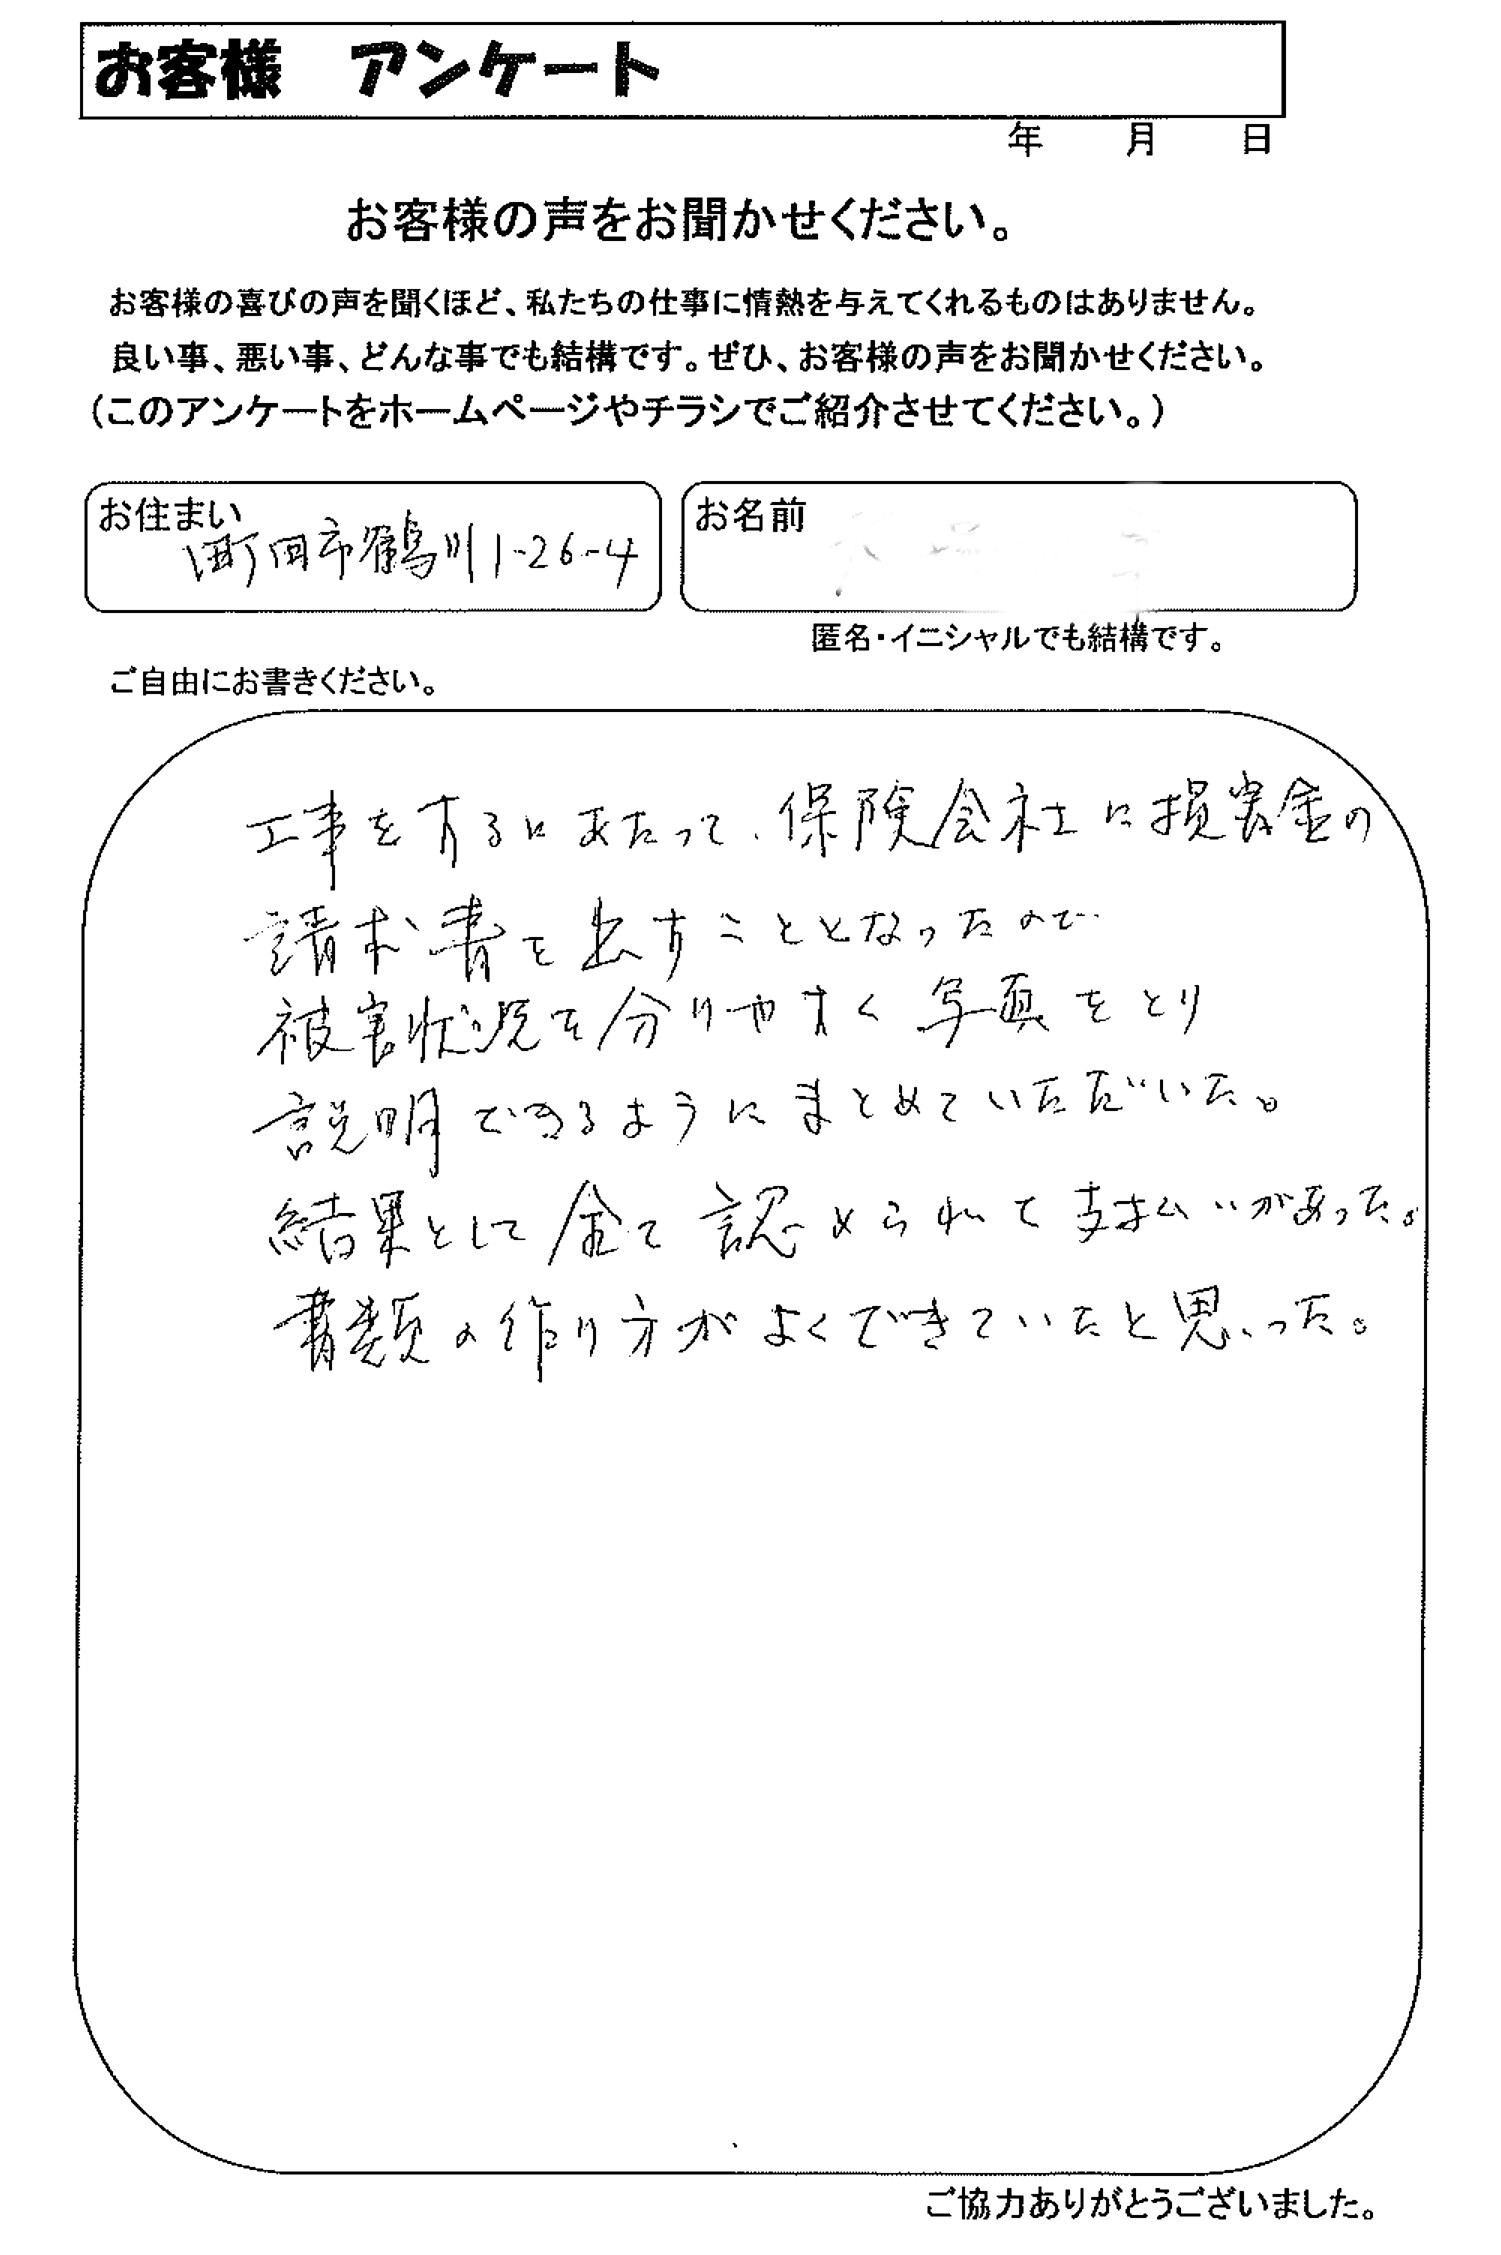 お客様 アンケート
年 月 日
お客様の声をお聞かせください。
お客様の喜びの声を聞くほど、私たちの仕事に情熱を与えてくれるものはありません。
良い事、悪い事、どんな事でも結構です。ぜひ、お客様の声をお聞かせください。
(このアンケートをホームページやチラシでご紹介させてください。)
お住まい
町田市鶴川1-26-4
お名前
匿名・イニシャルでも結構です。
ご自由にお書きください。
工事をするにあたって、保険会社に損害金の
請求書を出すこととなったので
被害状況を分りやすく写真をとり
説明できるようにまとめていただいた。
結果として全て認められて支払いがあった。
書類の作り方がよくできていたと思った。
ご協力ありがとうございました。